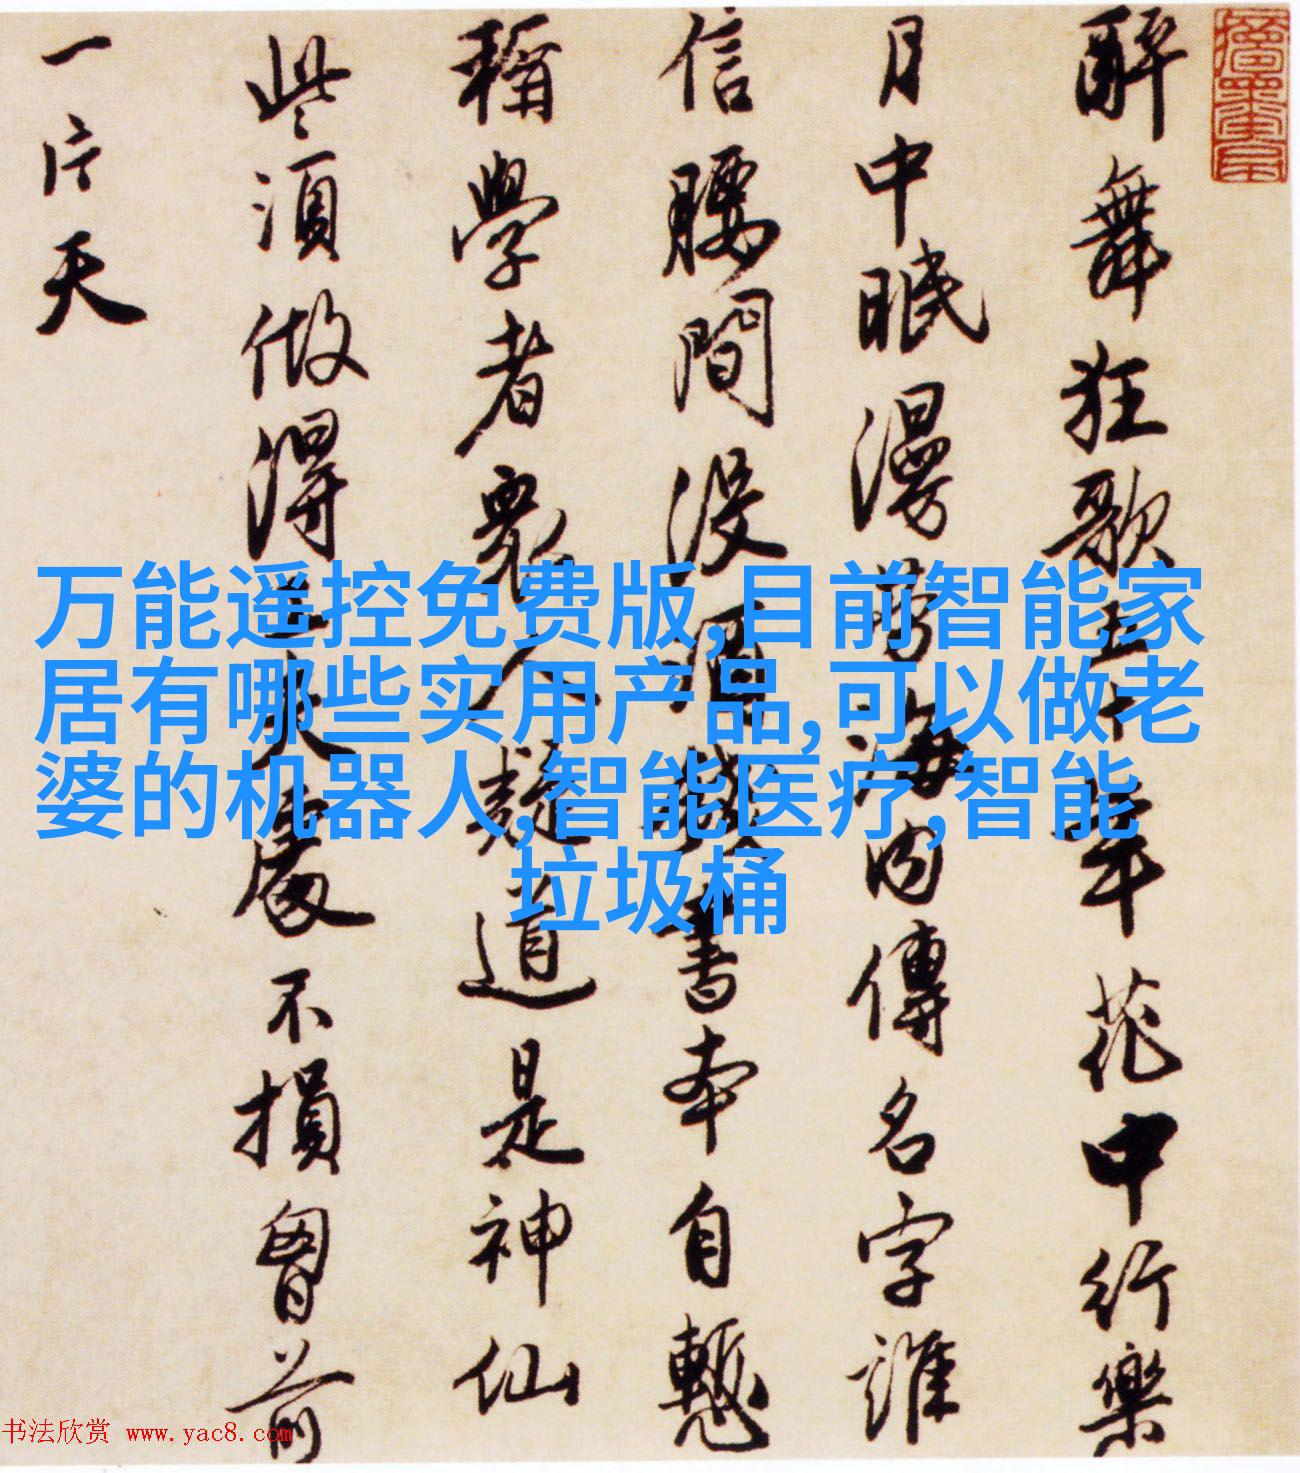 酔舞狂歌五十年花中行樂
月中眠漫勞海内傳名字誰
信腰間没酒錢書本自慙
稱學者衆人疑道是神仙
些須做得工夫處不損胷前
一片天
万能遥控免费版,目前智能家
居有哪些实用产品,可以做老
婆的机器人,智能医疗,智能
垃圾桶
书法欣赏 www.yac8.com